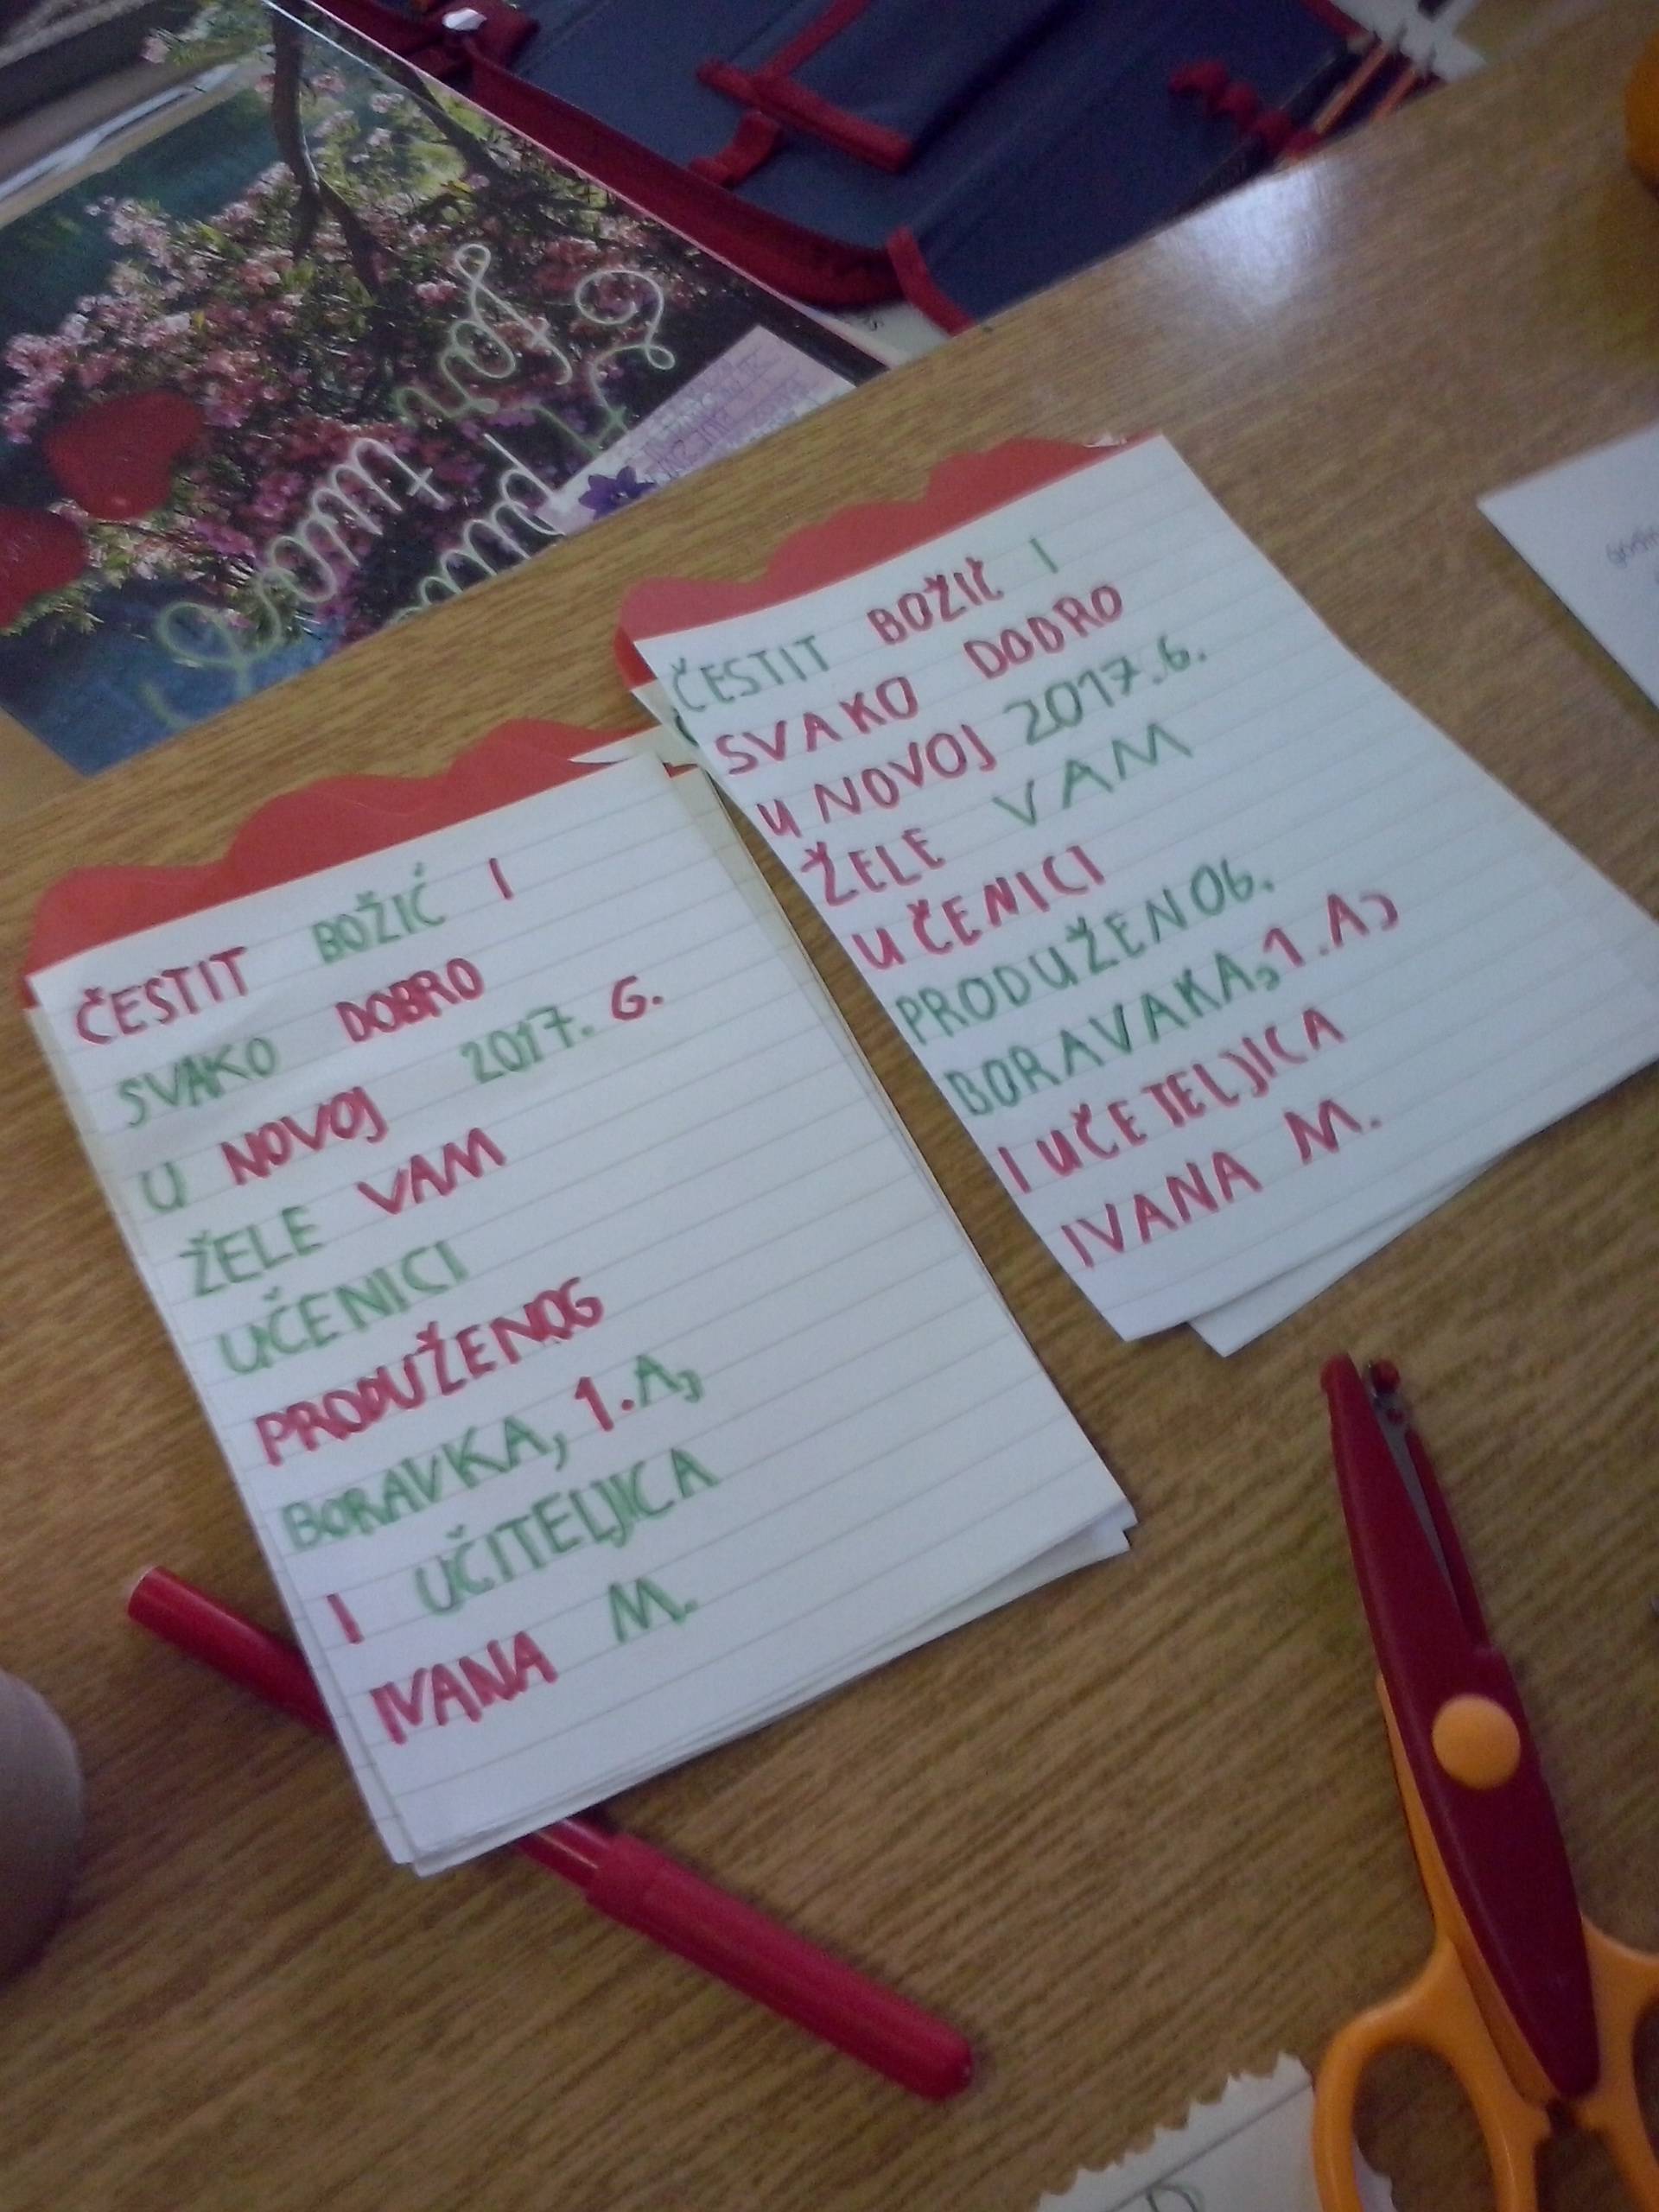 ČESTIT BOŽIĆ I
SVAKO DOBRO
U NOVOJ 2017. G.
ŽELE VAM
UČENICI
PRODUŽENOG
BORAVKA, 1.A,
I UČITELJICA
IVANA M.
ČESTIT BOŽIČ I
SVAKO DODRO
U NOVOJ 2017.6.
ŽELE VAM
UČENICI
PRODUŽENO6.
BORAVAKA,1.A,
I UČETELJICA
IVANA M.